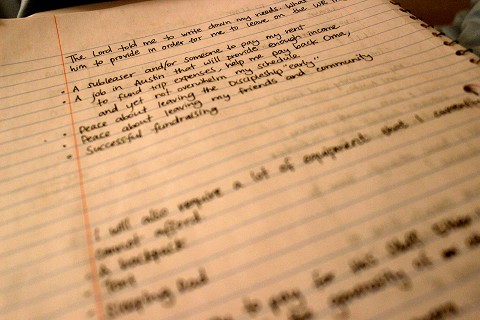 The Lord told me to write down my needs. What
him to provide in order for me to leave on the WR
• A subleaser and/or someone to pay my rent
• A job in Austin that will provide enough income
to fund trip expenses, help me pay back Oma,
and yet not overwhelm my schedule
• Peace about leaving the Discipleship "early"
• Peace about leaving my friends and community
• Successful fundraising
I will also require a lot of equipment that I currently
cannot afford
• A backpack
• Tent
• Sleeping Pad
to pay for this stuff. Either
the generosity of